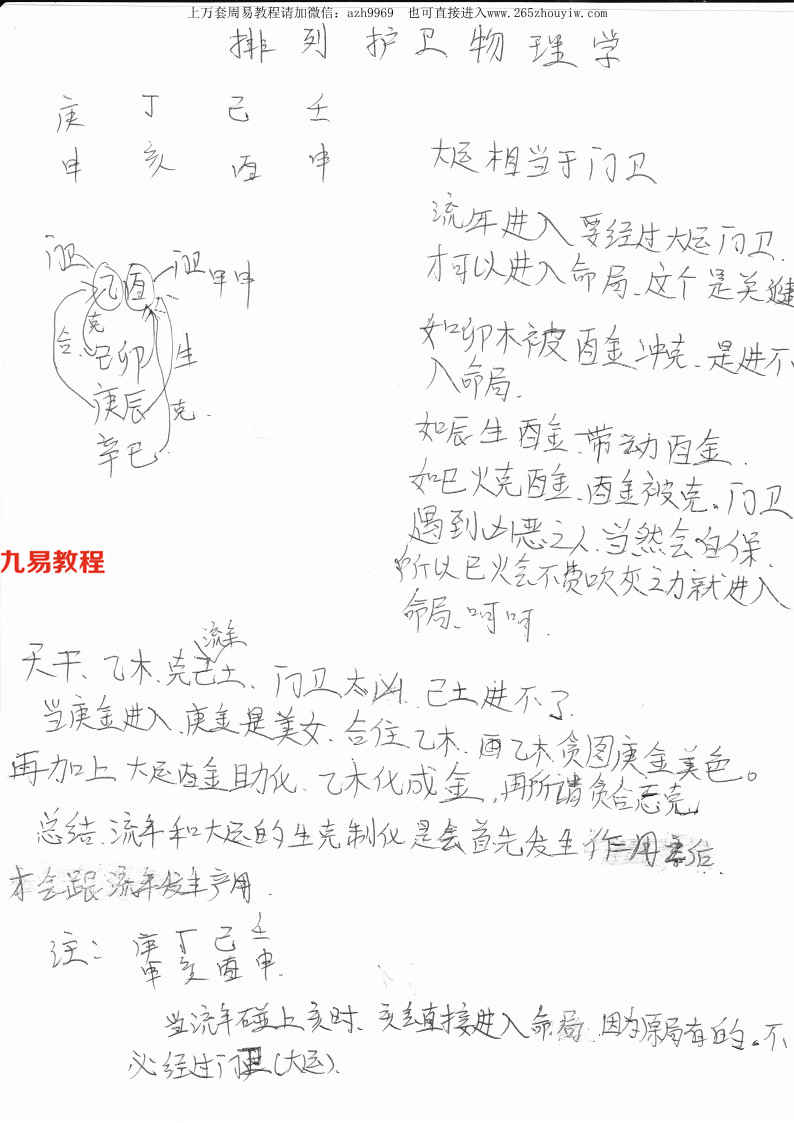 上万套周易教程请加微信：azh9969 也可直接进入www.265zhouyiw.com
排列护卫物理学
庚 丁 己 壬
申 亥 酉 申
大运相当于门卫
流年进入要经过大运门卫.
才可以进入命局、这个是关键
如卯木被酉金冲克、是进不
入命局.
如辰生酉金、带动酉金.
如巳火克酉金、酉金被克。门卫
遇到凶恶之人、当然会自保.
所以巳火会不费吹灰之力就进入
命局、呵呵.
门卫 乙酉 门卫 甲申
合 克 己卯 生
庚辰 克
辛巳
九易教程
流年
天干、乙木、克己土、门卫太凶、己土进不了.
当庚金进入、庚金是美女、合住乙木、而乙木贪图庚金美色。
再加上大运酉金助化、乙木化成金，再所谓贪合忘克
总结、流年和大运的生克制化是会首先发生作用 后
才会跟流年发生产用.
注： 庚 丁 己 壬
申 亥 酉 申.
当流年碰上亥时、亥会直接进入命局、因为原局有的。不
必经过门卫(大运).